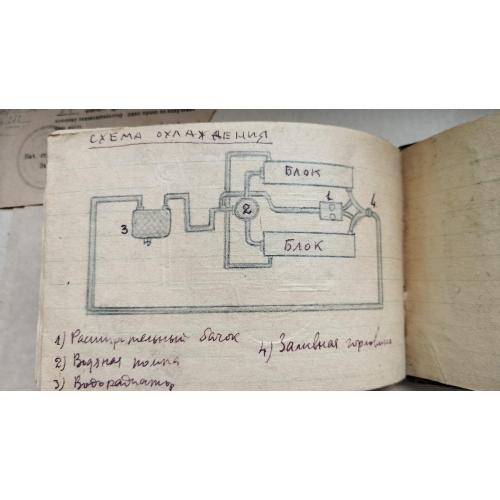 СХЕМА ОХЛАЖДЕНИЯ
БЛОК
1
4
2
3
БЛОК
1) Расширительный бачок
2) Водяная помпа
3) Водорадиатор
4) Заливная горловина